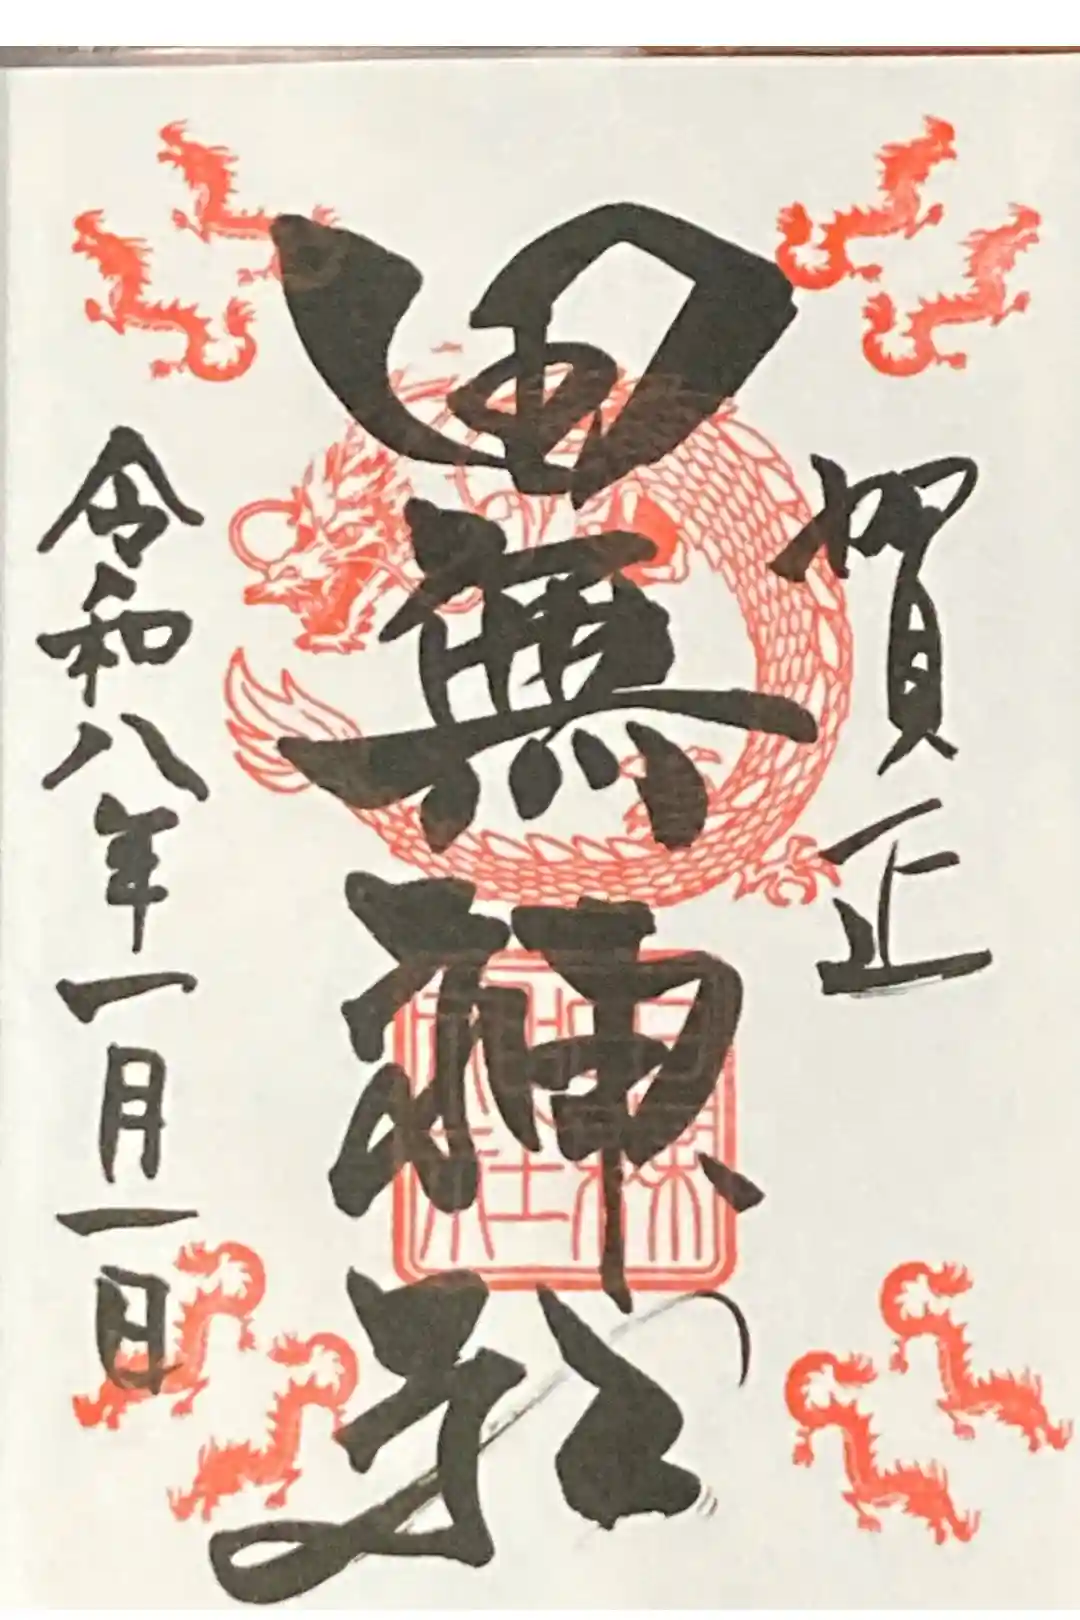 賀正
田無神社
令和八年一月一日